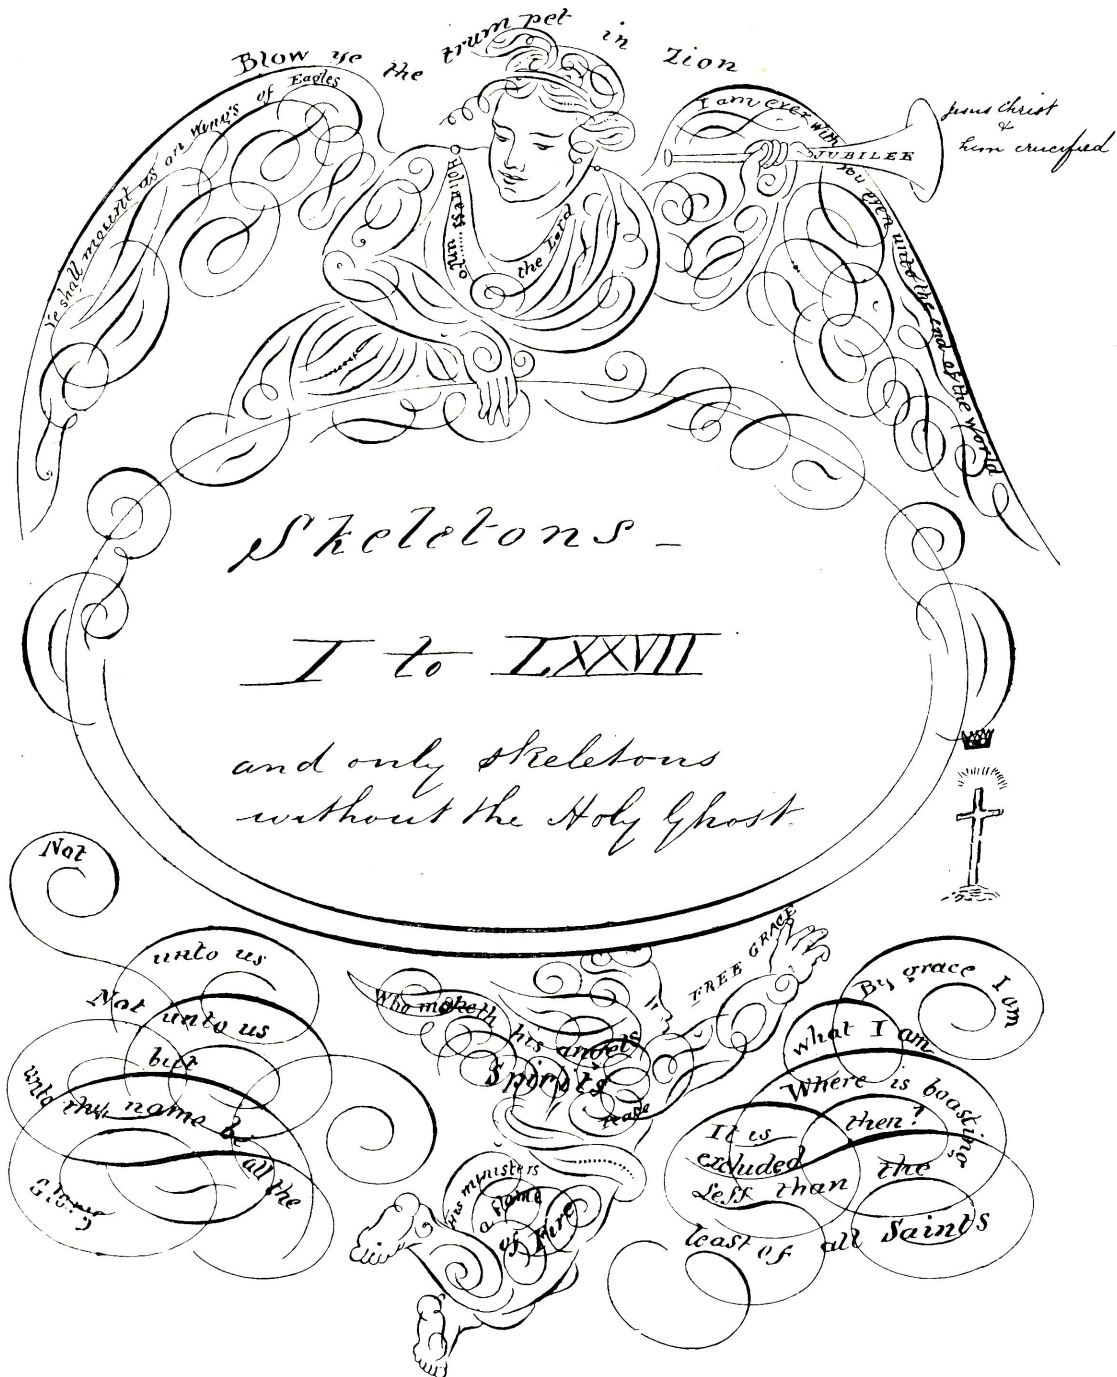 Blow ye the trumpet in Zion
Ye shall mount as on Wings of Eagles
I am ever with you even unto the end of the world
JUBILEE
Jesus Christ
&
him crucified
Holiness unto the Lord
Skeletons —
I to LXXVII
and only skeletons
without the Holy Ghost
Not
unto us
Not unto us
but
unto thy name be
all the
Glory
Who maketh his angels
Spirits
His ministers
a flame
of Fire
FREE GRACE
By grace I am
what I am
Where is boasting
then?
It is
excluded
Less than the
least of all Saints